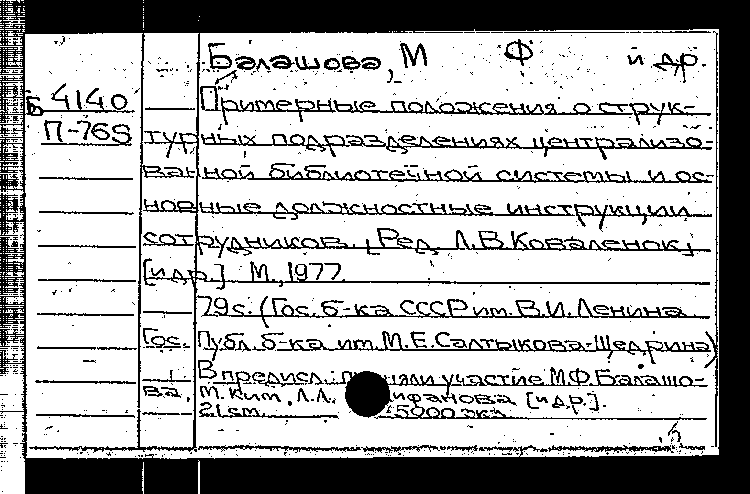 Балашова, М Ф и др.
Б 4140 Примерные положения о струк-
П-768 турных подразделениях централизо-
ванной библиотечной системы и ос-
новные должностные инструкции
сотрудников. [Ред. Л.В. Коваленок]
[и др.] М., 1977.
79 с. (Гос. б-ка СССР им. В.И. Ленина
Гос. Публ. б-ка им. М.Е. Салтыкова-Щедрина)
В предисл.: няли участие М.Ф. Балашо-
ва, М. Ким, Л.Л., ифанова [и др.].
21 см. 5000 экз.